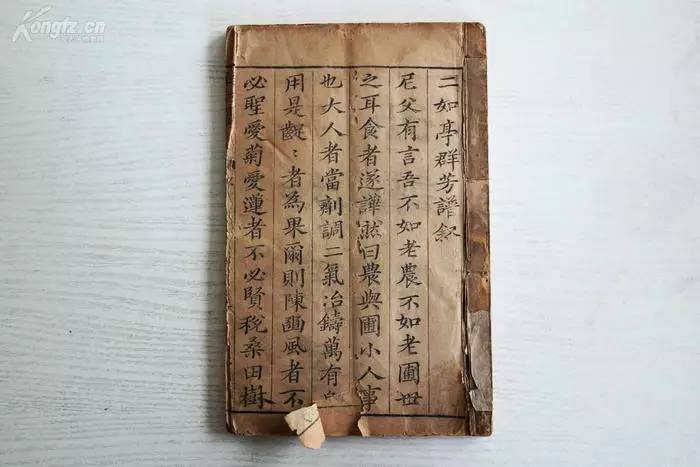 Kongfz.cn
二如亭群芳譜叙
尼父有言吾不如老農不如老圃世
之耳食者遂譁然曰農與圃小人事
也大人者當劑調二氣冶鑄萬有
用是齪：者為果爾則陳豳風者不
必聖愛菊愛蓮者不必賢稅桑田樹